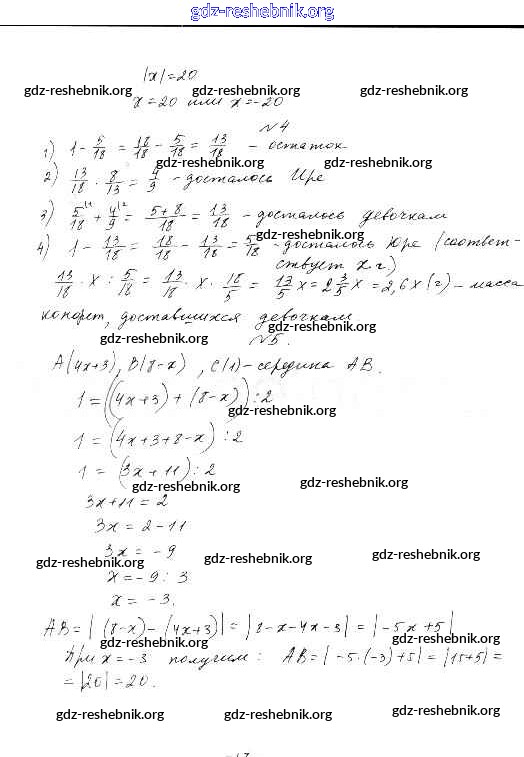 gdz-reshebnik.org
|x|=20
gdz-reshebnik.org gdz-reshebnik.org gdz-reshebnik.org
x=20 или x=-20
№4
1) 1 - 5/18 = 18/18 - 5/18 = 13/18 - остаток
gdz-reshebnik.org gdz-reshebnik.org
2) 13/18 · 8/13 = 4/9 - досталось Ире
3) 5/18 \1 + 4/9 \2 = 5+8/18 = 13/18 - досталось девочкам
gdz-reshebnik.org
4) 1 - 13/18 = 18/18 - 13/18 = 5/18 - досталось Юре (соответ-
ствует x г.)
13/18 · x : 5/18 = 13/18 · x · 18/5 = 13/5 x = 2 3/5 x = 2,6x (г) - масса
конфет, доставшихся девочкам
gdz-reshebnik.org
№5.
A(4x+3), B(8-x), C(1) - середина AB.
1 = ((4x+3) + (8-x)) : 2
gdz-reshebnik.org
1 = (4x+3+8-x) : 2
1 = (3x+11) : 2
gdz-reshebnik.org gdz-reshebnik.org
3x+11 = 2
3x = 2-11
3x = -9
gdz-reshebnik.org gdz-reshebnik.org gdz-reshebnik.org
x = -9 : 3
x = -3.
AB = |(8-x) - (4x+3)| = |8-x-4x-3| = |-5x+5|
gdz-reshebnik.org gdz-reshebnik.org
При x = -3 получим: AB = |-5·(-3)+5| = |15+5| =
= |20| = 20.
gdz-reshebnik.org gdz-reshebnik.org gdz-reshebnik.org